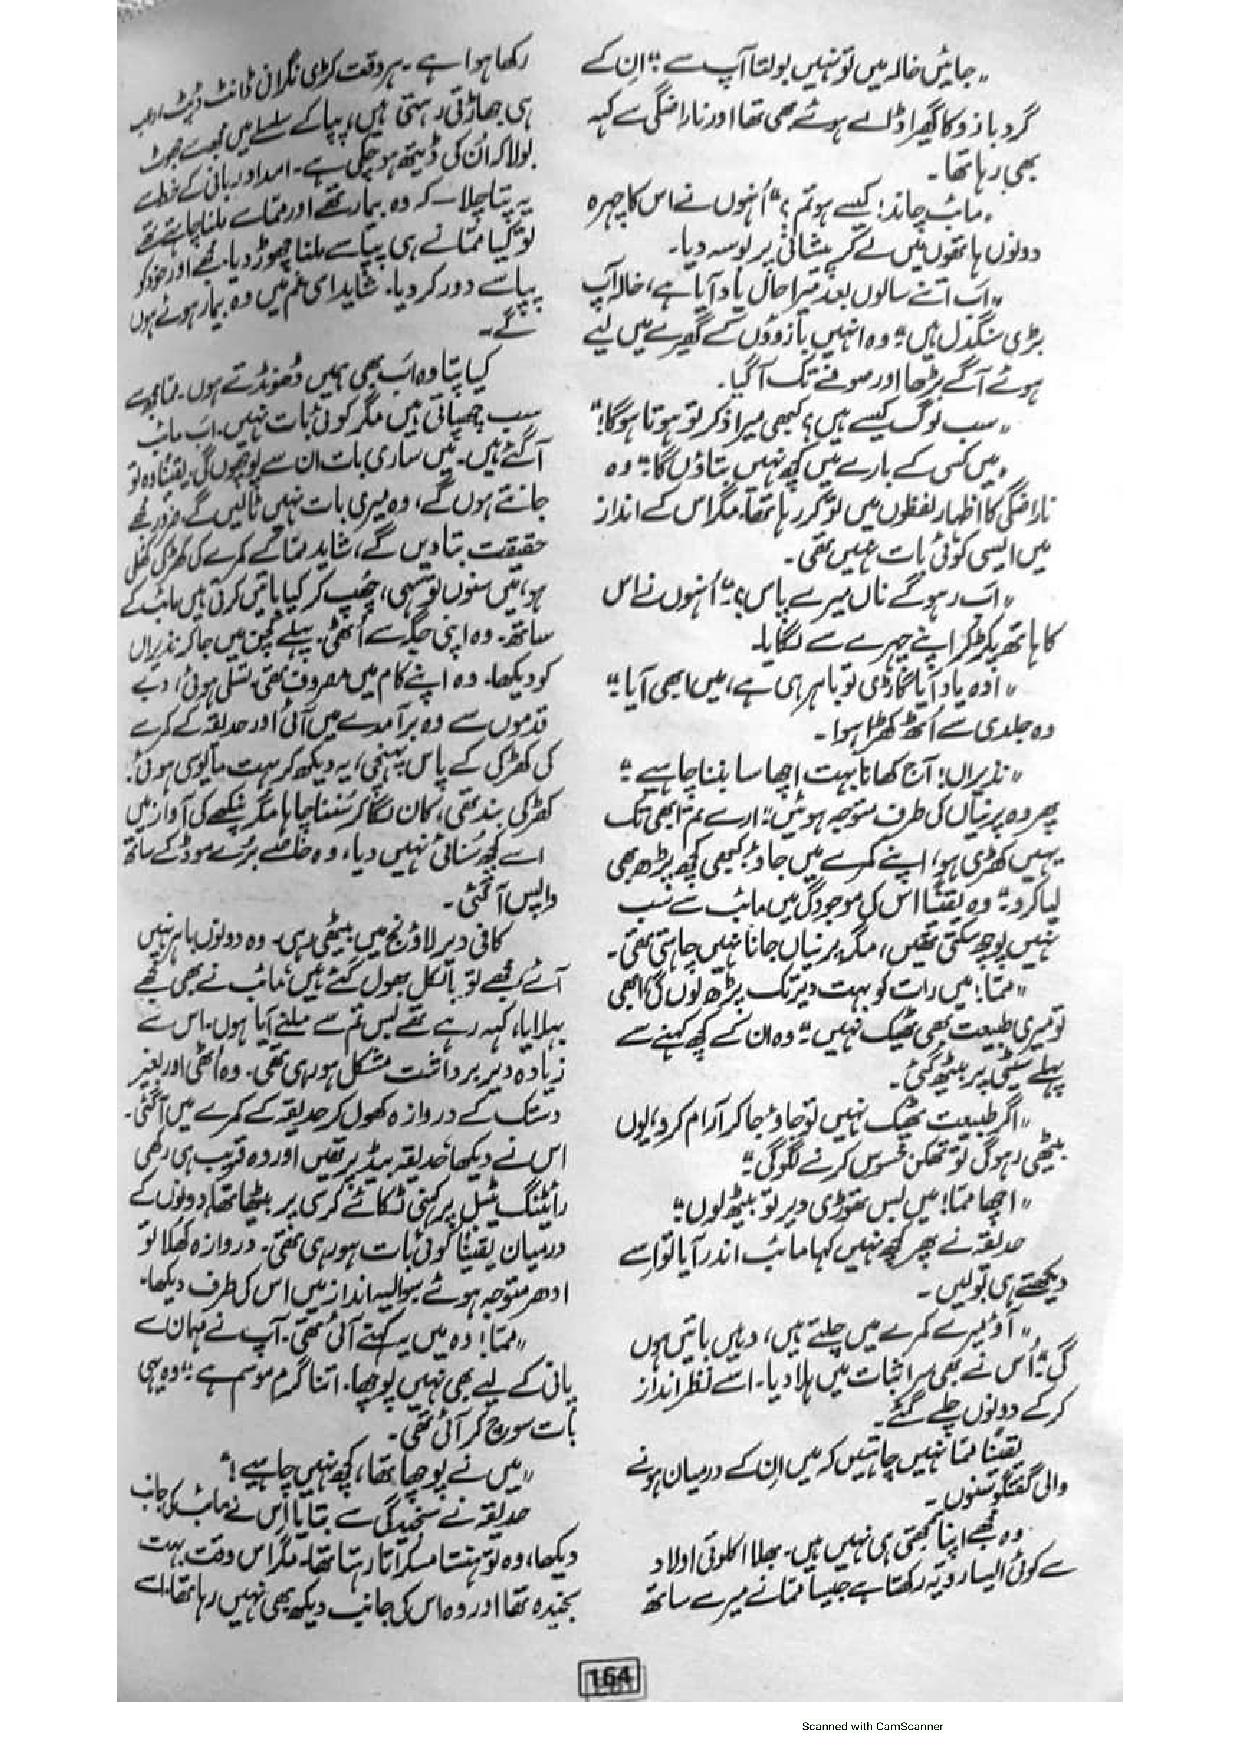 ”جائیں خالہ میں تو نہیں بولتا آپ سے“ ان کے
گرد بازو کا گھیرا ڈالے ہوئے بھی تھا اور ناراضگی سے کہہ
بھی رہا تھا۔
”مائب چاند! کیسے ہو تم؟“ اُنہوں نے اس کا چہرہ
دونوں ہاتھوں میں لے کر پیشانی پر بوسہ دیا۔
”اب اتنے سالوں بعد میرا حال یاد آیا ہے، خالہ آپ
بڑی سنگدل ہیں“ وہ انہیں بازوؤں کے گھیرے میں لیے
ہوئے آگے بڑھا اور صوفے تک آ گیا۔
”سب لوگ کیسے ہیں؟ کبھی میرا ذکر تو ہوتا ہوگا!“
”میں کسی کے بارے میں کچھ نہیں بتاؤں گا“ وہ
ناراضگی کا اظہار لفظوں میں تو کر رہا تھا، مگر اس کے انداز
میں ایسی کوئی بات نہیں تھی۔
”اب رہو گے ناں میرے پاس؟“ اُنہوں نے اس
کا ہاتھ پکڑ کر اپنے چہرے سے لگایا۔
”اوہ یاد آیا گاڑی تو باہر ہی ہے، میں ابھی آیا“
وہ جلدی سے اُٹھ کھڑا ہوا۔
”نذیراں! آج کھانا بہت اچھا سا بننا چاہیے“
پھر وہ پرنیاں کی طرف متوجہ ہوئیں“ ارے تم ابھی تک
یہیں کھڑی ہو، اپنے کمرے میں جاؤ، کبھی کچھ پڑھ بھی
لیا کرو“ وہ یقیناً اس کی موجودگی میں مائب سے سب
نہیں پوچھ سکتی تھیں، مگر پرنیاں جانا نہیں چاہتی تھی۔
”ممّا! میں رات کو بہت دیر تک پڑھ لوں گی ابھی
تو میری طبیعت بھی ٹھیک نہیں“ وہ ان کے کچھ کہنے سے
پہلے سیٹی پر بیٹھ گئی۔
”اگر طبیعت ٹھیک نہیں تو جاؤ جا کر آرام کرو، یوں
بیٹھی رہو گی تو تھکن محسوس کرنے لگو گی“
”اچھا ممّا! میں بس تھوڑی دیر تو بیٹھ لوں“
حدیقہ نے پھر کچھ نہیں کہا مائب اندر آیا تو اسے
دیکھتے ہی بولیں۔
”آؤ میرے کمرے میں چلتے ہیں، وہیں باتیں ہوں
گی“ اُس نے بھی سر اثبات میں ہلا دیا۔ اسے نظر انداز
کر کے دونوں چلے گئے۔
یقیناً ممّا نہیں چاہتیں کہ میں ان کے درمیان ہونے
والی گفتگو سنوں۔
وہ مجھے اپنا سمجھتی ہی نہیں ہیں۔ بھلا اکلوتی اولاد
سے کوئی ایسا رویہ رکھتا ہے جیسا ممّا نے میرے ساتھ
رکھا ہوا ہے۔ ہر وقت کڑی نگرانی ڈانٹ ڈپٹ،
ہی جھاڑتی رہتی ہیں، پپا کے سلسلے میں مجھ سے جھوٹ
بولا کہ اُن کی ڈیتھ ہو چکی ہے۔ امداد ربانی کے خط سے
یہ پتا چلا کہ وہ بیمار تھے اور ممّا سے ملنا چاہتے تھے
تو کیا ممّا نے ہی پپا سے ملنا چھوڑ دیا۔ مجھے اور خود کو
پپا سے دور کر دیا۔ شاید اسی غم میں وہ بیمار ہوئے ہوں
گے۔
کیا پتا وہ اب بھی ہمیں ڈھونڈتے ہوں۔ ممّا مجھ سے
سب چھپاتی ہیں مگر کوئی بات نہیں۔ اب مائب
آگئے ہیں۔ میں ساری بات ان سے پوچھوں گی، یقیناً وہ تو
جانتے ہوں گے، وہ میری بات نہیں ٹالیں گے ضرور مجھے
حقیقت بتا دیں گے، شاید ممّا کے کمرے کی کھڑکی کھلی
ہو، میں سنوں تو سہی، چُھپ کر کیا باتیں کرتی ہیں مائب کے
ساتھ۔ وہ اپنی جگہ سے اُٹھی۔ پہلے کچن میں جا کر نذیراں
کو دیکھا۔ وہ اپنے کام میں مصروف تھی، تسلی ہوئی، دبے
قدموں سے وہ برآمدے میں آئی اور حدیقہ کے کمرے
کی کھڑکی کے پاس پہنچی، یہ دیکھ کر بہت مایوسی ہوئی۔
کھڑکی بند تھی، کان لگا کر سُننا چاہا مگر پنکھے کی آواز میں
اسے کچھ سُنائی نہیں دیا، وہ خاصے بُرے موڈ کے ساتھ
واپس آگئی۔
کافی دیر لاؤنج میں بیٹھی رہی۔ وہ دونوں باہر نہیں
آئے مجھے تو بالکل بھول گئے ہیں مائب نے بھی مجھے
بہلایا، کہہ رہے تھے بس تم سے ملنے آیا ہوں۔ اس سے
زیادہ دیر برداشت مشکل ہو رہی تھی۔ وہ اُٹھی اور بغیر
دستک کے دروازہ کھول کر حدیقہ کے کمرے میں آگئی۔
اس نے دیکھا حدیقہ بیڈ پر تھیں اور وہ قریب ہی رکھی
رائٹنگ ٹیبل پر کہنی ٹکائے کرسی پر بیٹھا تھا، دونوں کے
درمیان یقیناً کوئی بات ہو رہی تھی۔ دروازہ کھلا تو
ادھر متوجہ ہوئے سوالیہ انداز میں اس کی طرف دیکھا۔
”ممّا! وہ میں یہ کہنے آئی تھی۔ آپ نے مہمان سے
پانی کے لیے بھی نہیں پوچھا۔ اتنا گرم موسم ہے“ وہ یہی
بات سوچ کر آئی تھی۔
”میں نے پوچھا تھا، کچھ نہیں چاہیے!“
حدیقہ نے سنجیدگی سے بتایا اس نے مائب کی جانب
دیکھا، وہ تو ہنستا مسکراتا رہتا تھا۔ مگر اس وقت بہت
سنجیدہ تھا اور وہ اس کی جانب دیکھ بھی نہیں رہا تھا، اسے
164
Scanned with CamScanner